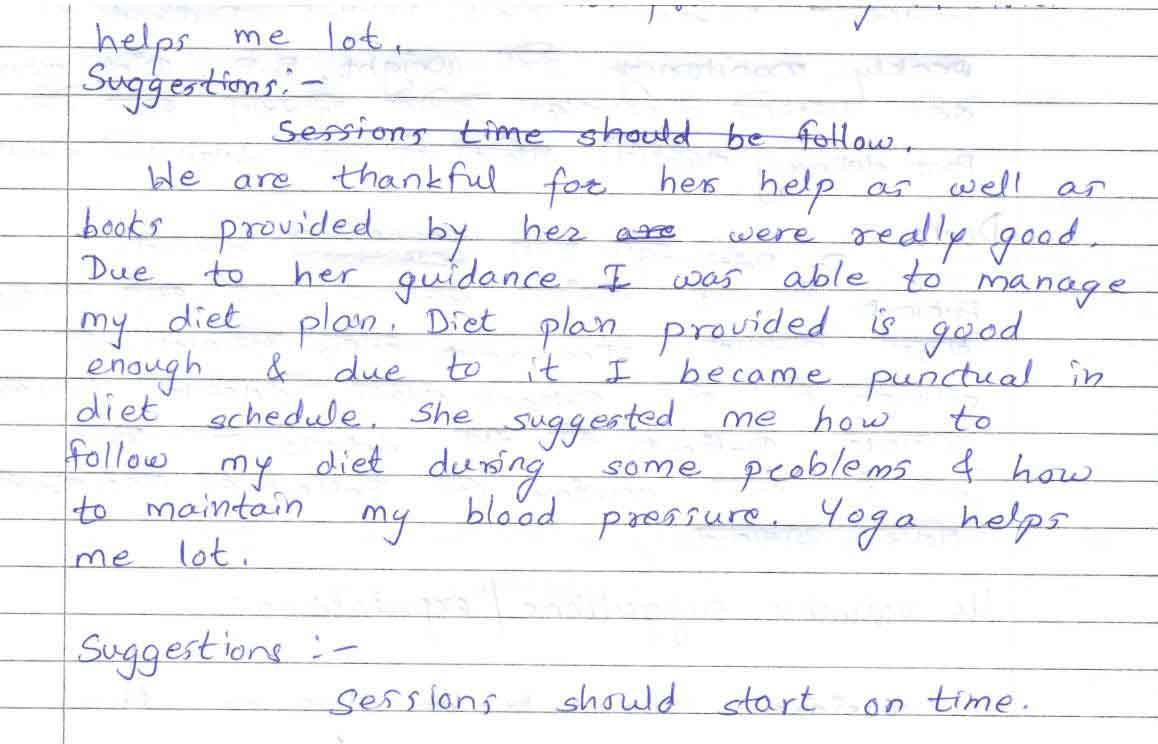 helps me lot.
Suggestions:-
Sessions time should be follow.
We are thankful for her help as well as
books provided by her are were really good.
Due to her guidance I was able to manage
my diet plan. Diet plan provided is good
enough & due to it I became punctual in
diet schedule. She suggested me how to
follow my diet during some problems & how
to maintain my blood pressure. Yoga helps
me lot.
Suggestions :-
Sessions should start on time.